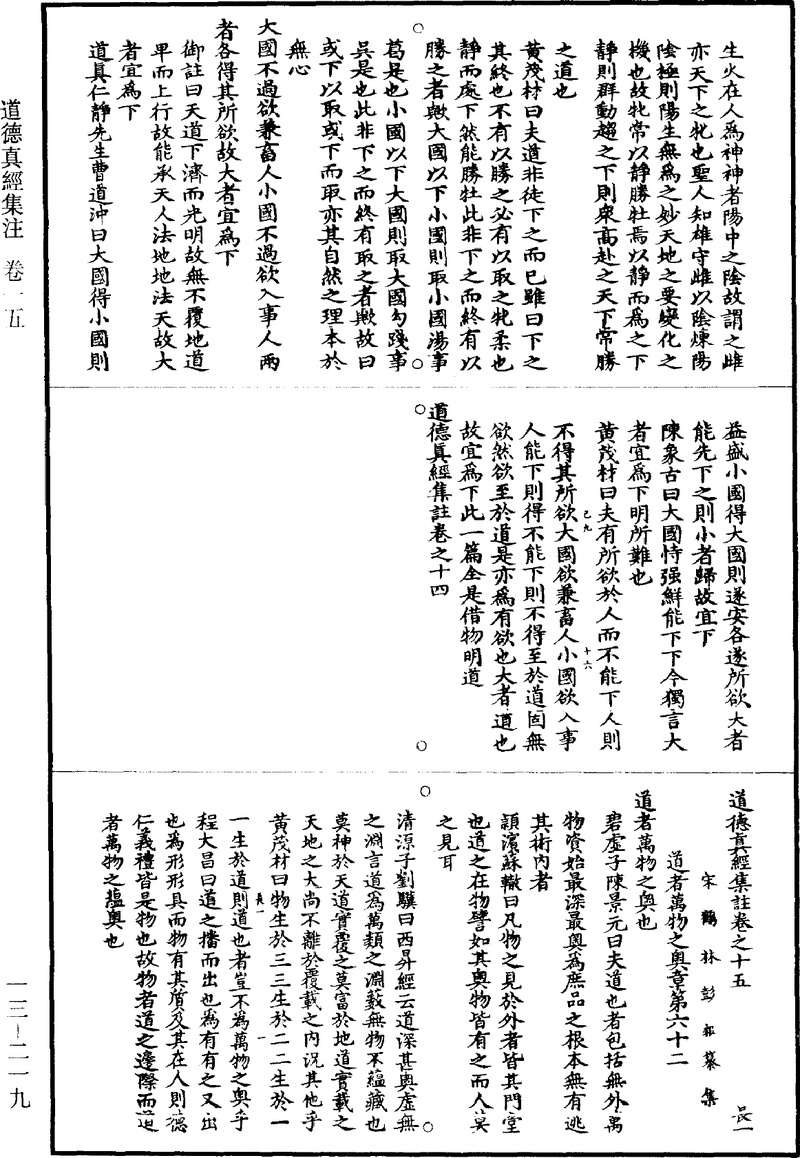 生火在人爲神神者陽中之陰故謂之雌
亦天下之牝也聖人知雄守雌以陰煉陽
陰極則陽生無爲之妙天地之要變化之
機也故牝常以靜勝牡焉以靜而爲之下
靜則群動趨之下則衆高赴之天下常勝
之道也
黄茂材曰夫道非徒下之而已雖曰下之
其終也不有以勝之必有以取之牝柔也
靜而處下然能勝牡此非下之而終有以
勝之者歟大國以下小國則取小國湯事
葛是也小國以下大國則取大國勾踐事
吳是也此非下之而終有取之者歟故曰
或下以取或下而取亦其自然之理本於
無心
大國不過欲兼畜人小國不過欲入事人兩
者各得其所欲故大者宜爲下
御註曰天道下濟而光明故無不覆地道
卑而上行故能承天人法地地法天故大
者宜爲下
道真仁靜先生曹道沖曰大國得小國則
益盛小國得大國則遂安各遂所欲大者
能先下之則小者歸故宜下
陳象古曰大國恃强鮮能下下今獨言大
者宜爲下明所難也
黄茂材曰夫有所欲於人而不能下人則
不得其所欲大國欲兼畜人小國欲入事
人能下則得不能下則不得至於道固無
欲然欲至於道是亦爲有欲也大者道也
故宜爲下此一篇全是借物明道
道德真經集註卷之十四
道德真經集註卷之十五
長一
宋鶴林彭耜纂集
道者萬物之奧章第六十二
道者萬物之奧也
碧虛子陳景元曰夫道也者包括無外萬
物資始最深最奧爲庶品之根本無有逃
其術内者
頴濱蘇轍曰凡物之見於外者皆其門堂
也道之在物譬如其奧物皆有之而人莫
之見耳
清源子劉驥曰西昇經云道深甚奧虛無
之淵言道爲萬類之淵藪無物不蘊藏也
莫神於天道實覆之莫富於地道實載之
天地之大尚不離於覆載之内況其他乎
黄茂材曰物生於三三生於二二生於一
一生於道則道也者豈不爲萬物之奧乎
程大昌曰道之播而出也爲有有之又出
也爲形形具而物有其質及其在人則德
仁義禮皆是物也故物者道之邊際而道
者萬物之蘊奧也
道德真經集注 卷一五
一三—二一九